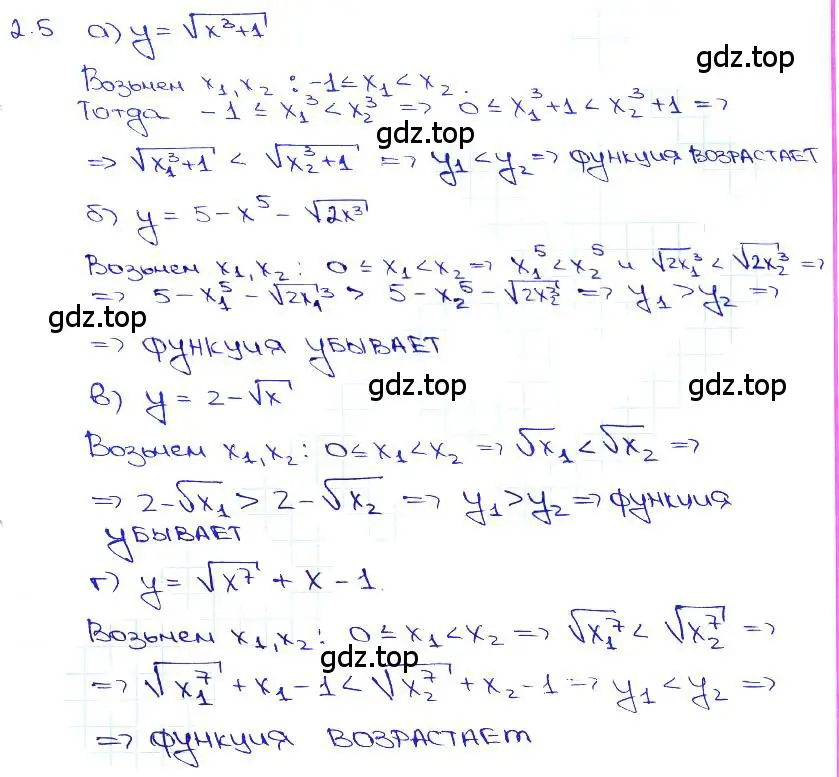 2.5 а) y = √(x³+1)
gdz.top
Возьмем x₁, x₂ : -1 ≤ x₁ < x₂.
Тогда -1 ≤ x₁³ < x₂³ => 0 ≤ x₁³+1 < x₂³+1 =>
gdz.top
=> √(x₁³+1) < √(x₂³+1) => y₁ < y₂ => функция ВОЗРАСТАЕТ
б) y = 5 - x⁵ - √(2x³)
gdz.top
Возьмем x₁, x₂ : 0 ≤ x₁ < x₂ => x₁⁵ < x₂⁵ и √(2x₁³) < √(2x₂³) =>
=> 5 - x₁⁵ - √(2x₁³) > 5 - x₂⁵ - √(2x₂³) => y₁ > y₂ =>
gdz.top
=> функция УБЫВАЕТ
в) y = 2 - √x
gdz.top
gdz.top
Возьмем x₁, x₂ : 0 ≤ x₁ < x₂ => √x₁ < √x₂ =>
=> 2 - √x₁ > 2 - √x₂ => y₁ > y₂ => функция
УБЫВАЕТ
г) y = √(x⁷) + x - 1.
Возьмем x₁, x₂ : 0 ≤ x₁ < x₂ => √(x₁⁷) < √(x₂⁷) =>
gdz.top
=> √(x₁⁷) + x₁ - 1 < √(x₂⁷) + x₂ - 1 => y₁ < y₂ =>
=> функция ВОЗРАСТАЕТ